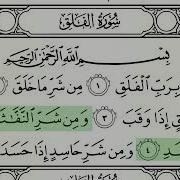 سُورَةُ الفَلَقِ
بِسْمِ ٱللَّهِ ٱلرَّحْمَٰنِ ٱلرَّحِيمِ
بِرَبِّ ٱلْفَلَقِ ١ مِن شَرِّ مَا خَلَقَ
إِذَا وَقَبَ ٣ وَمِن شَرِّ ٱلنَّفَّٰثَٰ
٤ وَمِن شَرِّ حَاسِدٍ إِذَا حَسَدَ